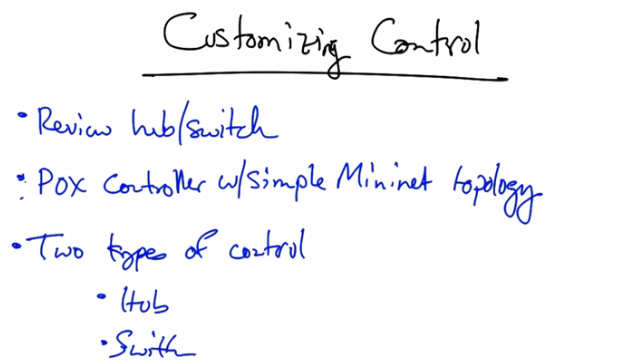 Customizing Control
• Review hub/switch
• Pox Controller w/simple Mininet topology
• Two types of control
• Hub
• Swith